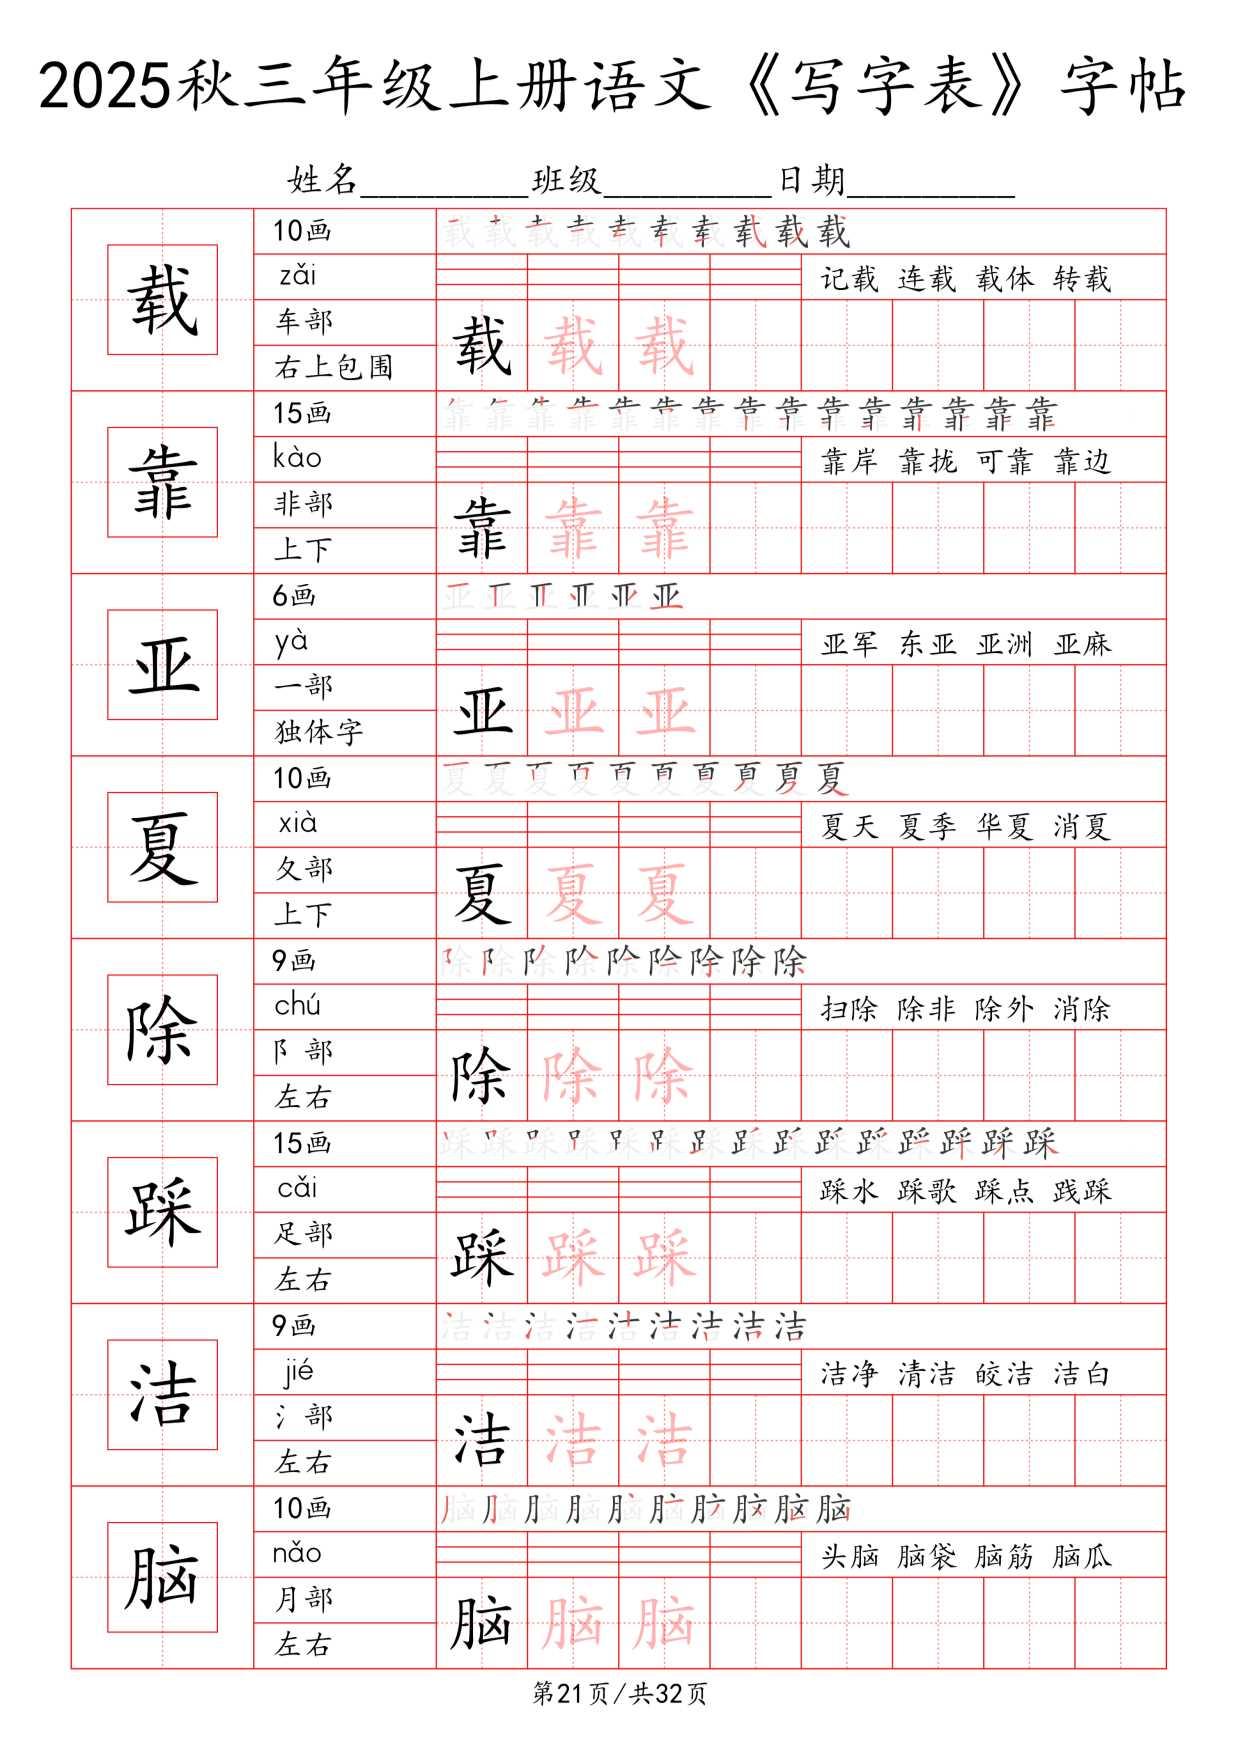 2025秋三年级上册语文《写字表》字帖
姓名__________班级__________日期__________
载
10画
载 载 载 载 载 载 载 载 载 载
zǎi
记载 连载 载体 转载
车部
载 载 载
右上包围
靠
15画
靠 靠 靠 靠 靠 靠 靠 靠 靠 靠 靠 靠 靠 靠 靠
kào
靠岸 靠拢 可靠 靠边
非部
靠 靠 靠
上下
亚
6画
亚 亚 亚 亚 亚 亚
yà
亚军 东亚 亚洲 亚麻
一部
亚 亚 亚
独体字
夏
10画
夏 夏 夏 夏 夏 夏 夏 夏 夏 夏
xià
夏天 夏季 华夏 消夏
夂部
夏 夏 夏
上下
除
9画
除 除 除 除 除 除 除 除 除
chú
扫除 除非 除外 消除
阝部
除 除 除
左右
踩
15画
踩 踩 踩 踩 踩 踩 踩 踩 踩 踩 踩 踩 踩 踩 踩
cǎi
踩水 踩歌 踩点 践踩
足部
踩 踩 踩
左右
洁
9画
洁 洁 洁 洁 洁 洁 洁 洁 洁
jié
洁净 清洁 皎洁 洁白
氵部
洁 洁 洁
左右
脑
10画
脑 脑 脑 脑 脑 脑 脑 脑 脑 脑
nǎo
头脑 脑袋 脑筋 脑瓜
月部
脑 脑 脑
左右
第21页/共32页